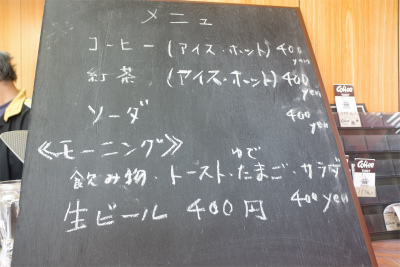 メニュ
コーヒー (アイス・ホット) 400 yen
紅茶 (アイス・ホット) 400 yen
ソーダ 400 yen
≪モーニング≫
飲み物・トースト・ゆでたまご・サラダ 400 yen
生ビール 400円
Coffee
Coffee